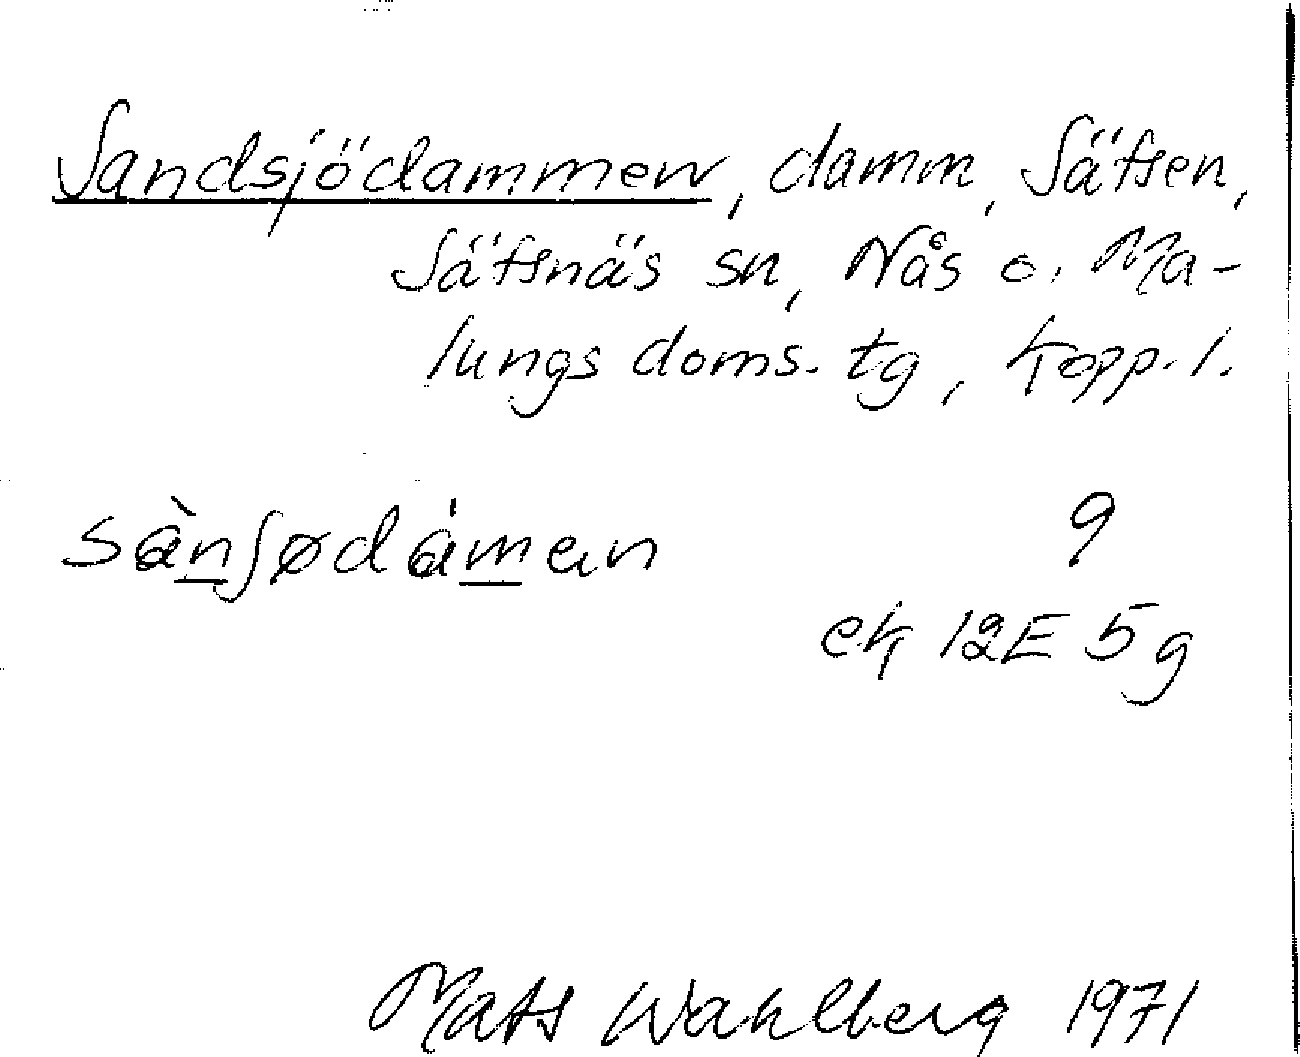 Sandsjödammen, damm, Sätsen,
Sätsnäs sn, Nås o. Ma-
lungs doms. tg, Kopp. l.
sànʃødámen 9
ek 12E 5g
Mats Wahlberg 1971